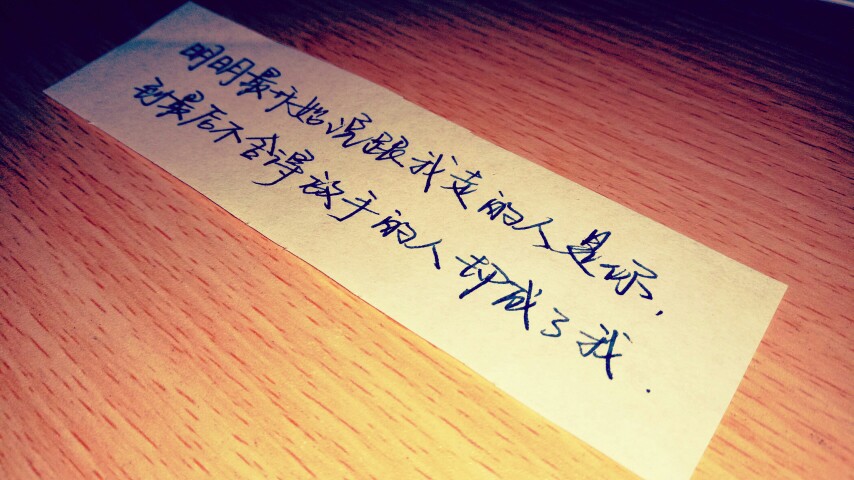 明明最开始说跟我走的人是你,
到最后不舍得放手的人却成了我.